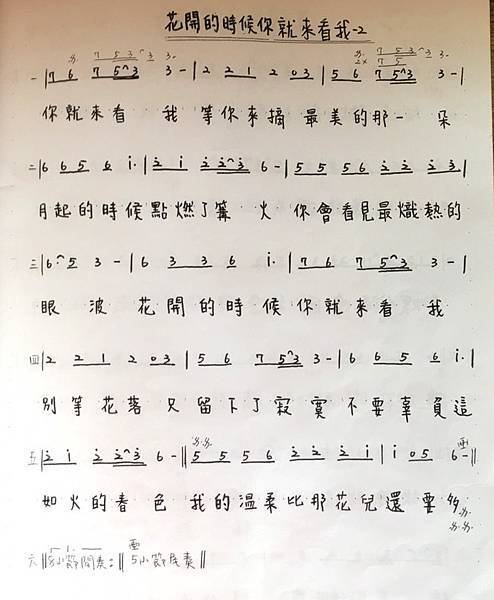 花開的時候你就來看我-2
7 5 3⌒3 3-
一|7 6 7 5⌒3 3-|2 2 1 2 0 3|5 6 7 5⌒3 3-|
你就來看 我 等你來摘 最美的那一 朵
二|6 6 5 6 i·|2̇ i 2̇ 2̇⌒3 6-|5 5 5 6 2̇ 2̇ 2̇ 3̇|
月起的時候點燃了篝 火 你會看見最熾熱的
三|6⌒5 3-|6 3 3 6 i·|7 6 7 5⌒3 3-|
眼 波 花開的時候你就來看 我
四|2 2 1 2 0 3|5 6 7 5⌒3 3-|6 6 5 6 i·|
別等花落又留下了寂 寞 不要辜負這
五|2̇ i 2̇ 2̇⌒3 6-‖5 5 5 6 2̇ 2̇ 2̇ i|i 0 5 6-‖
如火的春 色 我的溫柔比那花兒還要多
六‖8小節間奏:‖ 5小節尾奏‖